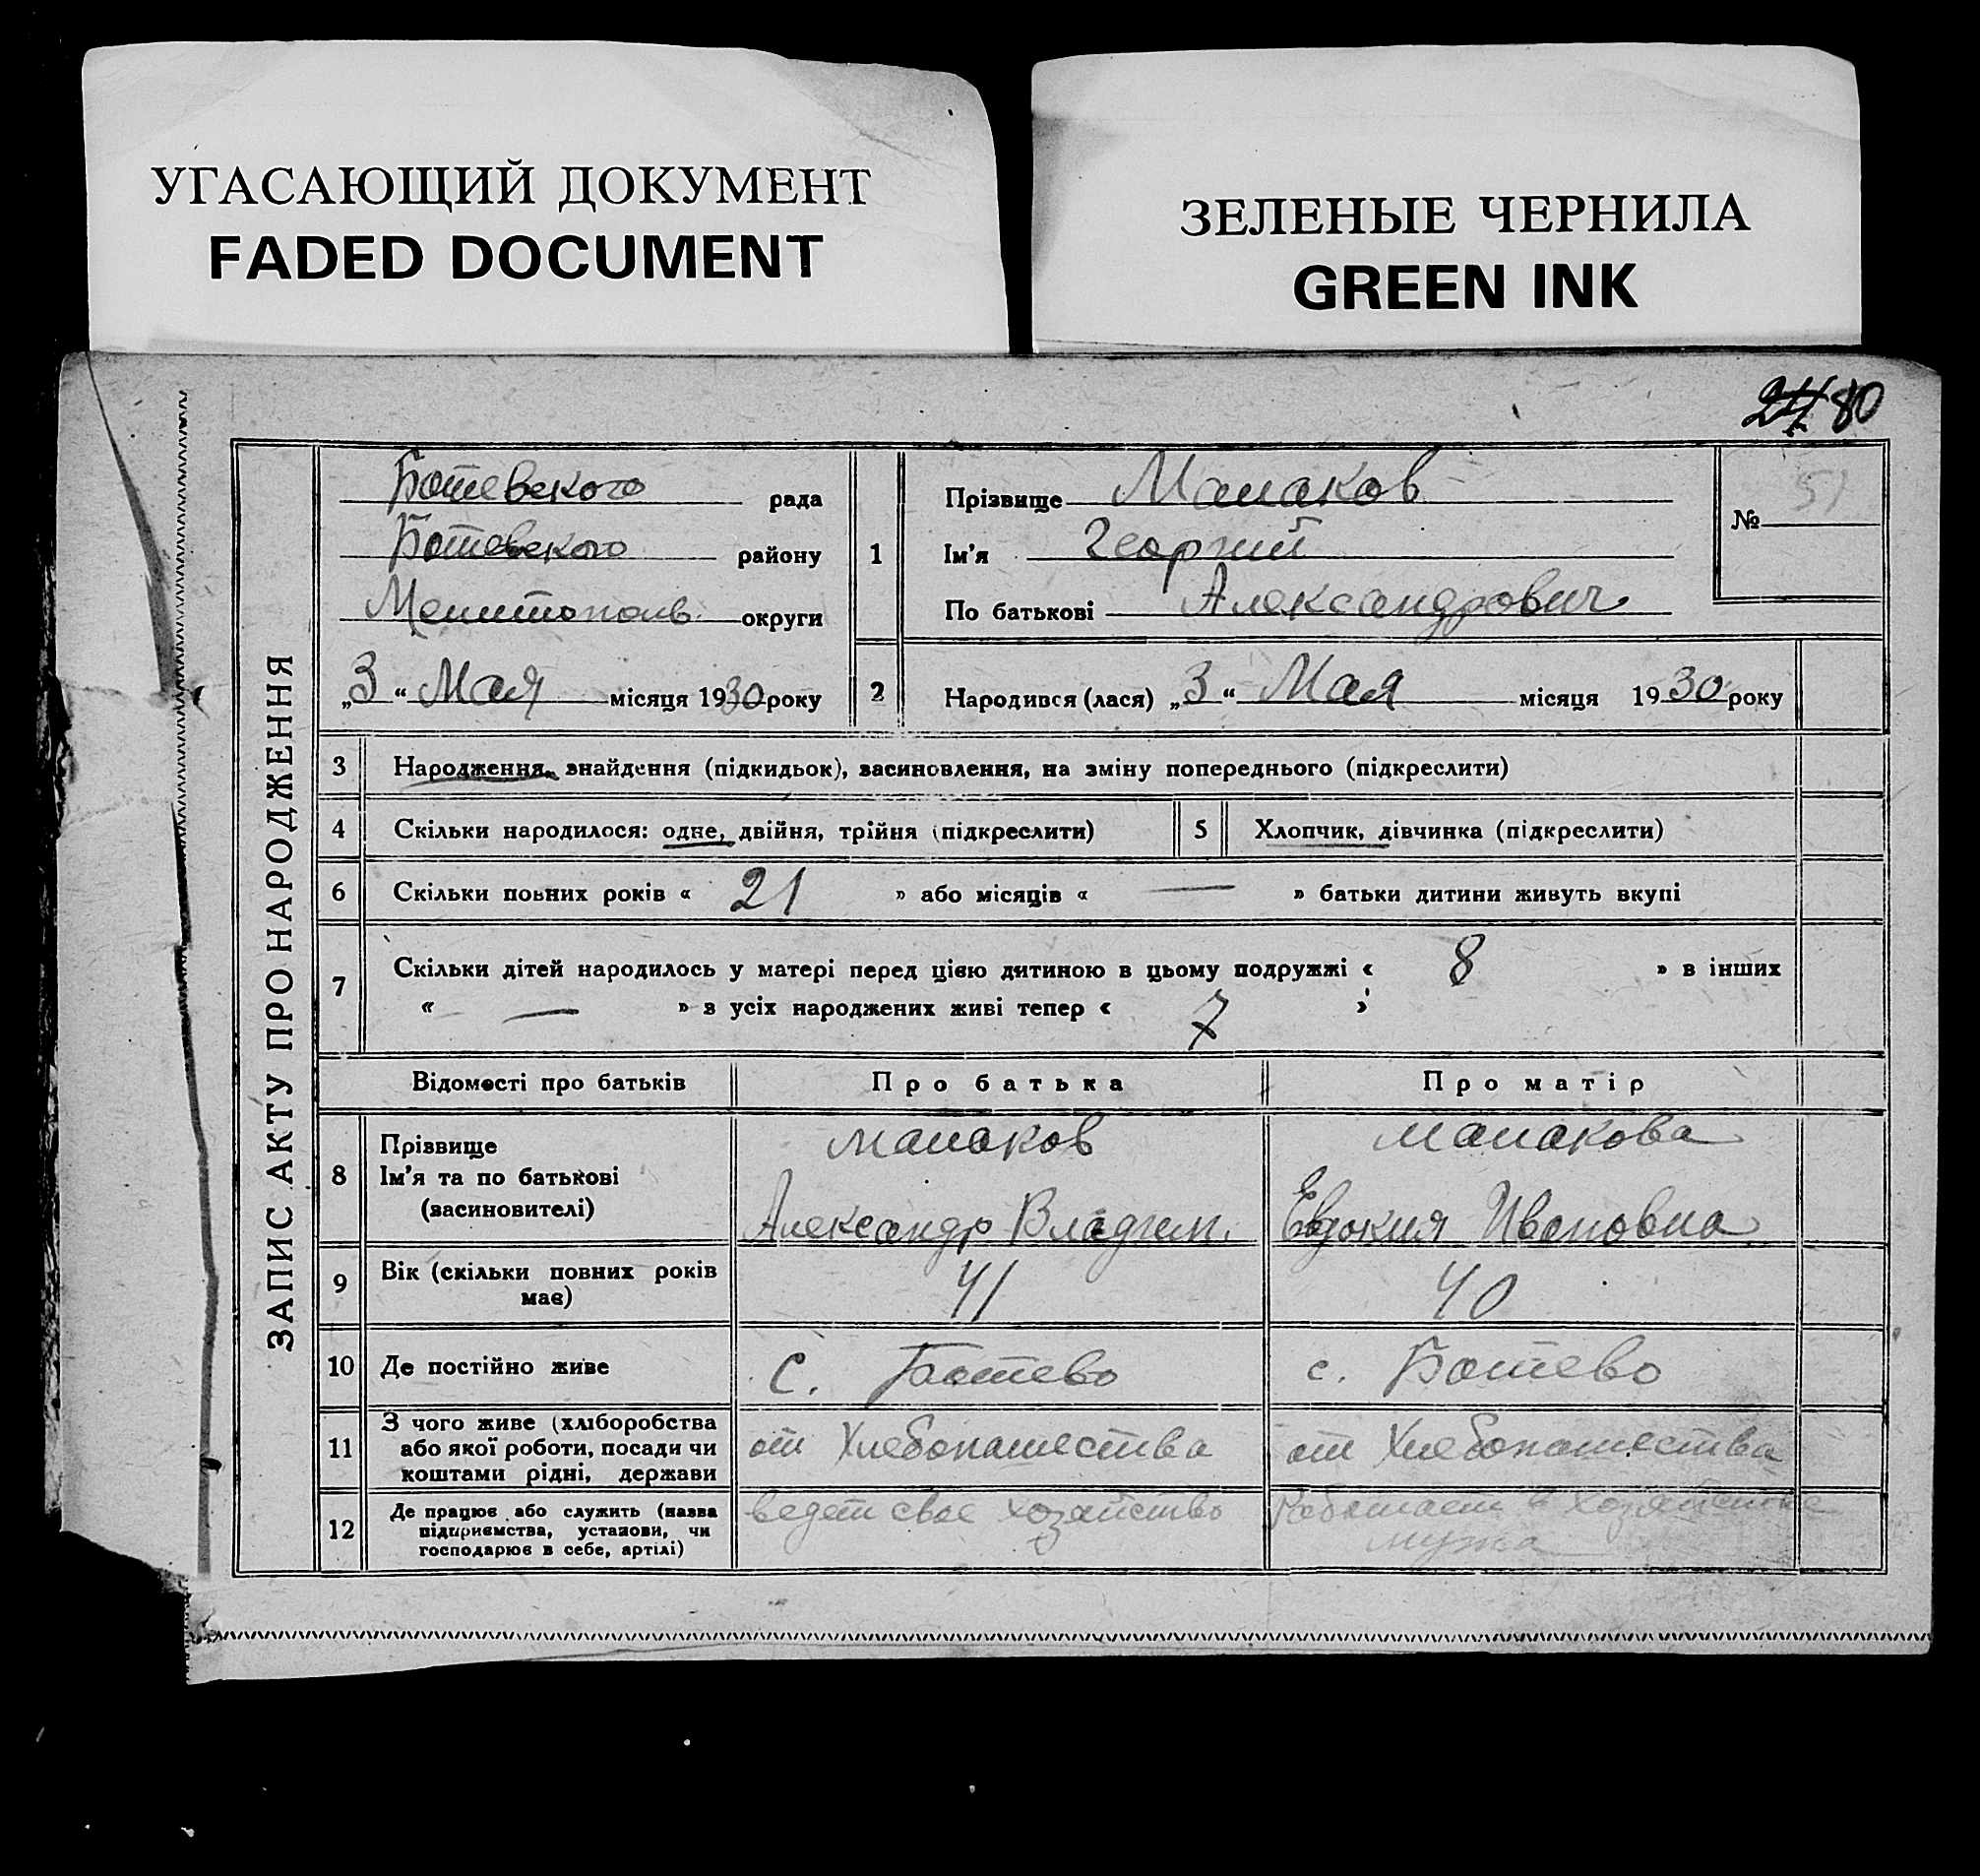 УГАСАЮЩИЙ ДОКУМЕНТ
FADED DOCUMENT
ЗЕЛЕНЫЕ ЧЕРНИЛА
GREEN INK
80
ЗАПИС АКТУ ПРО НАРОДЖЕННЯ
Ботевского рада
Ботевского району
Мелитополь. округи
„3“ Мая місяця 1930 року
1
Прізвище Малаков
Ім'я Георгий
По батькові Александрович
№ 51
2 Народився (лася) „3“ Мая місяця 1930 року
3 Народження, знайдення (підкидьок), засиновлення, на зміну попереднього (підкреслити)
4 Скільки народилося: одне, двійня, трійня (підкреслити) 5 Хлопчик, дівчинка (підкреслити)
6 Скільки повних років « 21 » або місяців « — » батьки дитини живуть вкупі
7 Скільки дітей народилось у матері перед цією дитиною в цьому подружжі « 8 » в інших
« — » з усіх народжених живі тепер « 7 »
Відомості про батьків Про батька Про матір
8 Прізвище
Ім'я та по батькові
(засиновителі)
Малаков
Александр Владим.
Малакова
Евдокия Ивановна
9 Вік (скільки повних років
має)
41 40
10 Де постійно живе с. Ботево с. Ботево
11 З чого живе (хліборобства
або якої роботи, посади чи
коштами рідні, держави
от Хлебопашества от Хлебопашества
12 Де працює або служить (назва
підприємства, установи, чи
господарює в себе, артілі)
ведет свое хозяйство
Работает в хозяйстве
мужа